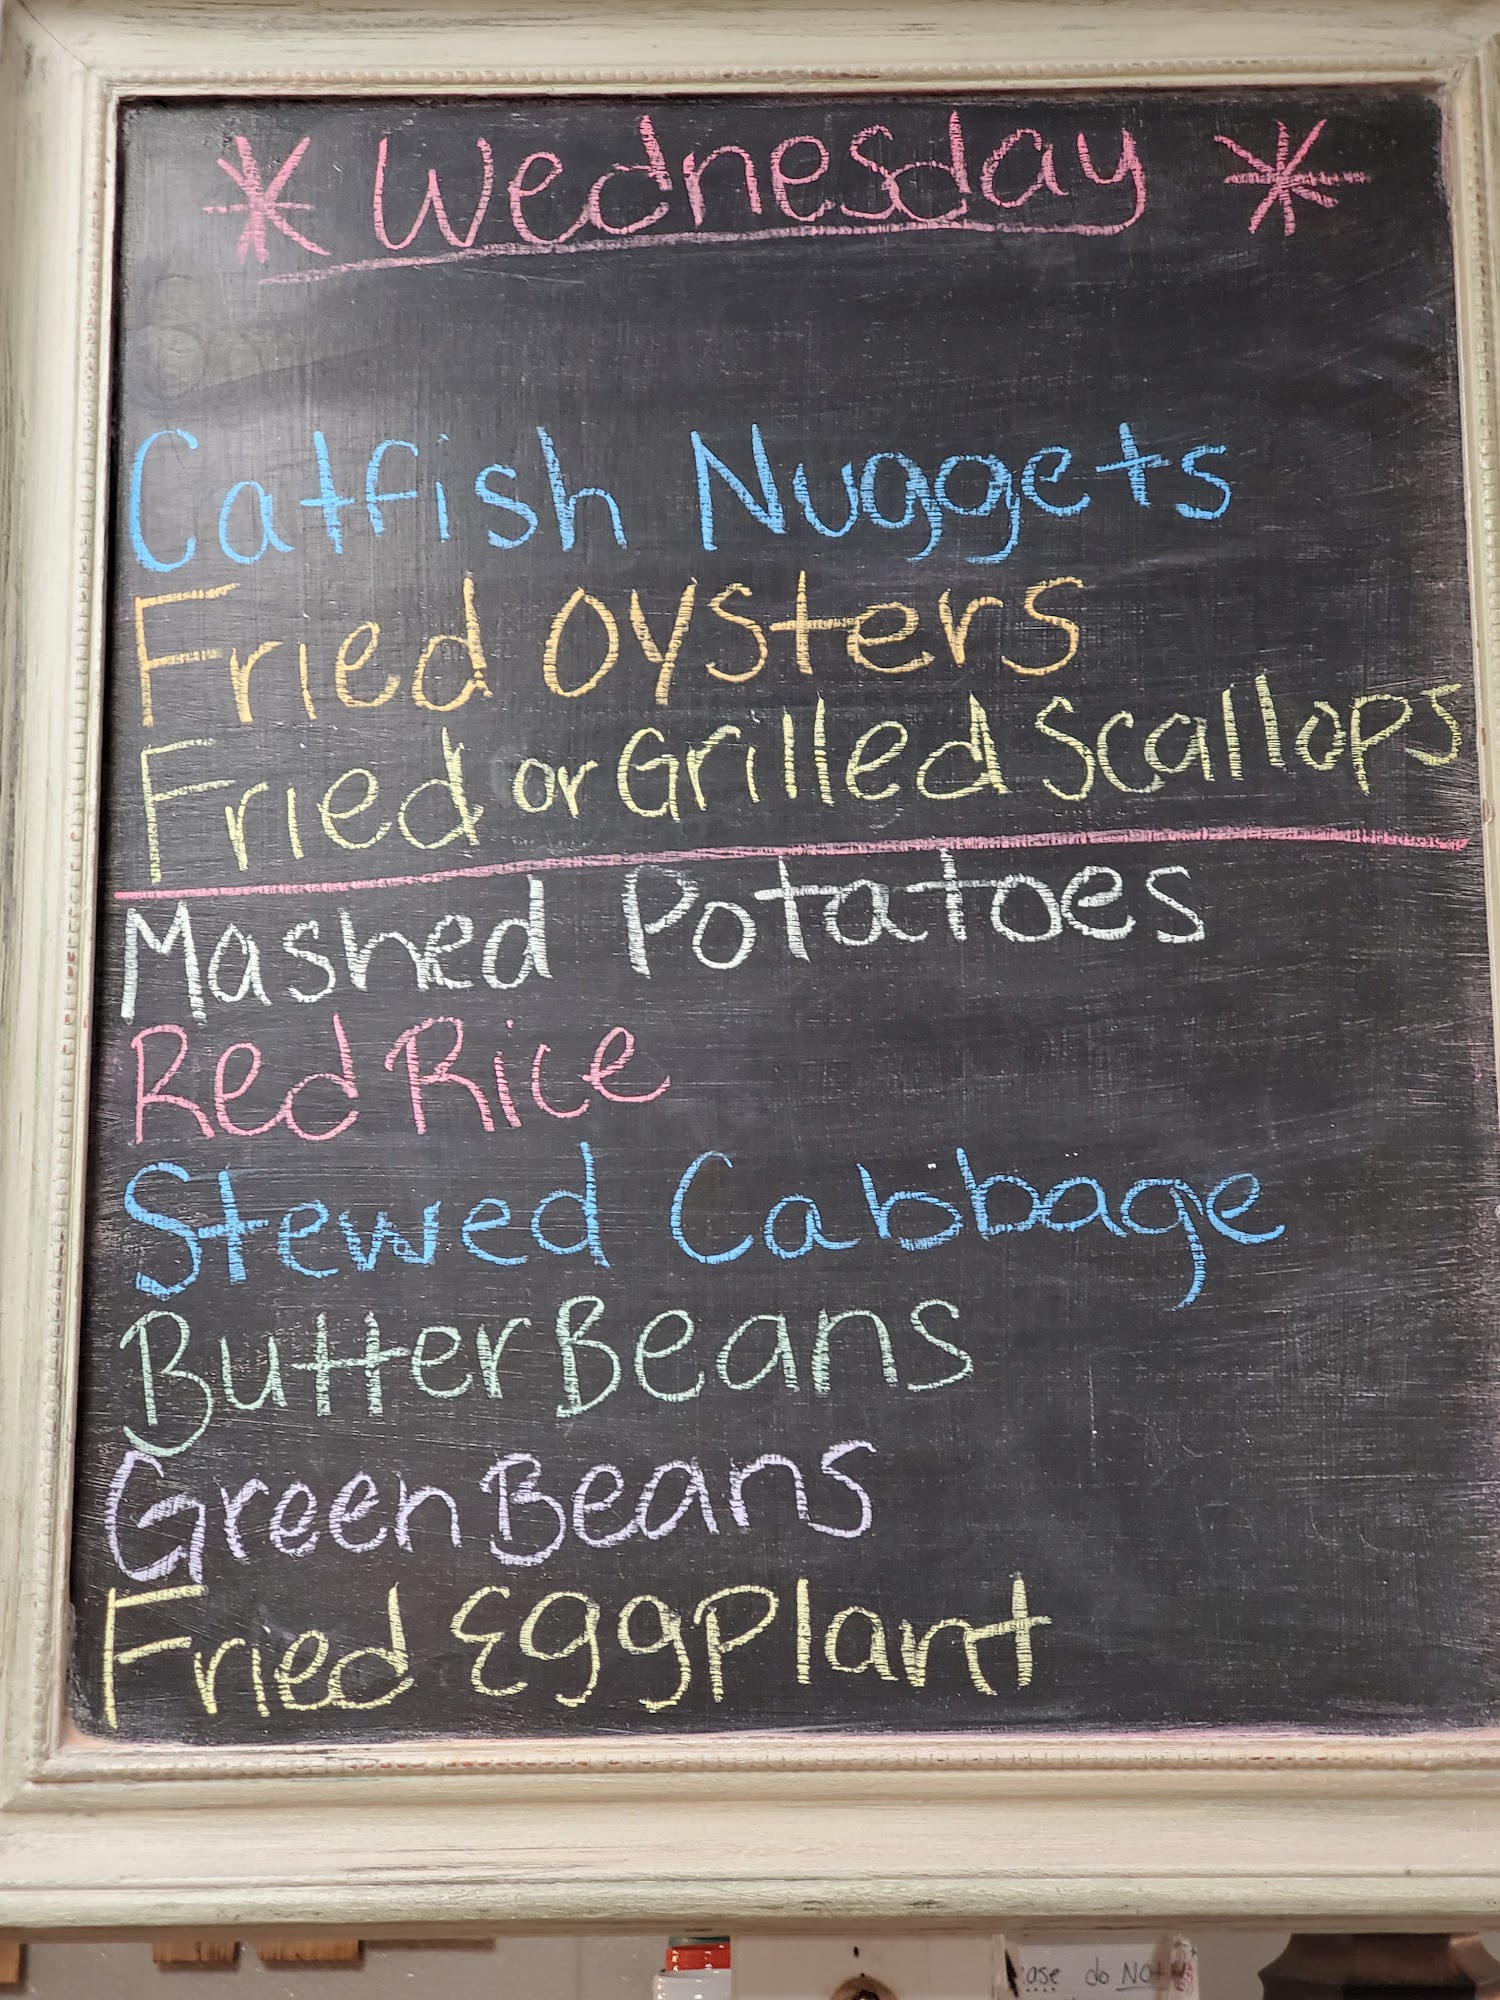 * Wednesday *
Catfish Nuggets
Fried Oysters
Fried or Grilled Scallops
Mashed Potatoes
Red Rice
Stewed Cabbage
Butter Beans
Green Beans
Fried EggPlant
do Not